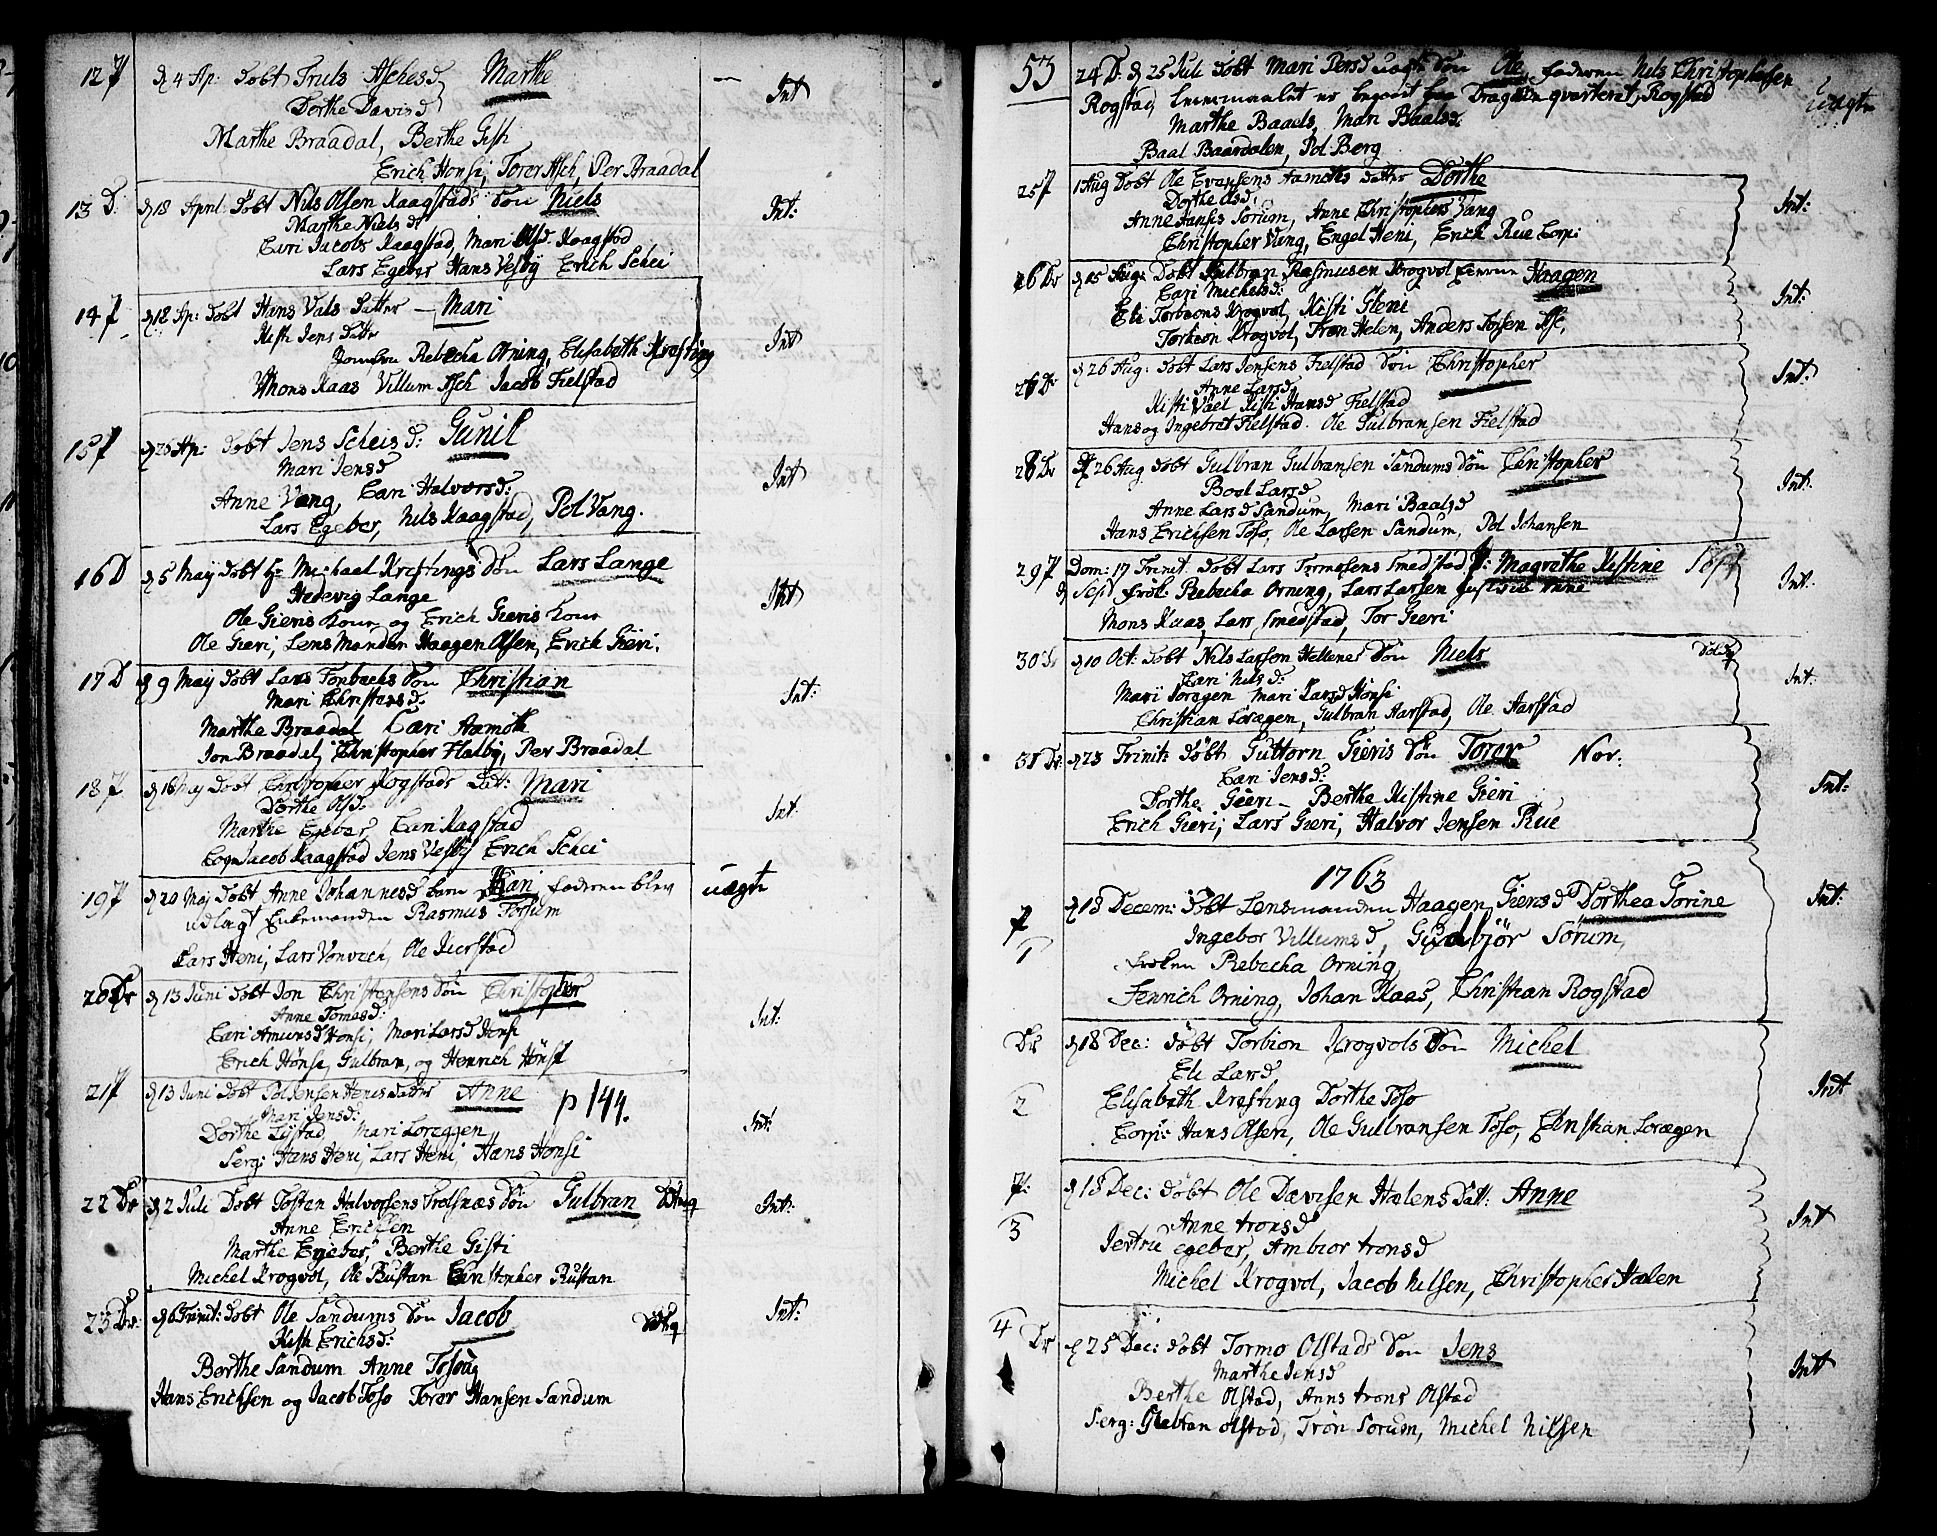 12 P d 4 Ap: døbt Truls Aschesd Marthe — Int
Dorthe Davisd
Marthe Braadal, Berthe Gisti
Erich Honsi, Toror Asch, Per Braadal
13 D. d 18 April døbt Nils Olsen Kaagstads Søn Niels Int:
Marthe Nielsd
Cari Jacobs Kaagstad, Mari Olsd Kaagstad
Lars Egeber Hans Vesby Erich Schei
14 P d 18 Ap: døbt Hans Vals Datter — Mari Int
Kisti Jens Datr
Jomfru Rebecha Orning, Elisabeth Kresting
Mons Kaas Villum Asch Jacob Fielstad
15 P d 26 Ap: døbt Jens Scheis d: Gunil Int
Mari Jensd
Anne Vang, Cari Halvorsd:
Lars Egeber, Nils Kaagstad, Pol Vang.
16 D d 5 May døbt Hr Michael Krestings Søn Lars Lange Int
Hedevig Lange
Ole Gieris Kone og Erich Gieris Kone
Ole Gieri, Lensmanden Haagen Olsen, Erich Gieri.
17 D d 9 May døbt Lars Torbachs Søn Christian Int:
Mari Christensd.
Marthe Braadal Cari Aamoth
Jon Braadal, Christopher Flatby, Per Braadal
18 P d 16 May døbt Christopher Rogstads Dat: Mari Int.
Dorthe Olsd.
Marthe Egeber, Cari Kagstad
Jacob Kaagstad Jens Vesby Erich Schei
19 P d 20 Maj døbt Anne Johannesd barn Kari, faderen blev uægte
udlagt Enkemanden Rasmus Forsum
Lars Heni, Lars Vonvech, Ole Kierstad
20 Dr d 13 Juni døbt Jon Christensens Søn Christopher Int:
Anne Tomasd:
Cari Amundsd Honsi, Mari Larsd Honsi
Erich Hønsi, Gulbran, og Henrich Hønsi
21 P d 13 Juni døbt Pol Jensen Henis datter Anne p 144. Int:
Mari Jensd:
Dorthe Lystad Mari Loreggen
Serg: Hans Heni, Lars Heni, Hans Honsi
22 Dr d 2 Juli Døbt Tosten Halvorsens Trelsnæs Søn Gulbran Int:
Anne Ericksen
Marthe Egeber, Berthe Gisti
Michel Krogvol, Ole Rustan Christopher Rustan
23 Dr. d 6 Trinit: døbt Ole Sandums Søn Jacob Int:
Kisti Erichsd.
Berthe Sandum Anne Tosoug
Hans Erichsen og Jacob Toso Toror Hansen Sandum
53 24 D. d 25 Juli døbt Mari Persd uægte Søn Ole, faderen Nils Christophersen uægte
Rogstad, Leiermaalet er begaaet paa Dragon qvarteret, Rogstad
Marthe Baaels, Mari Baalsd.
Baal Baardalen, Pol Berg
25 P 1 Aug døbt Ole Evensens Aamoths datter Dorthe Int:
Dorthe Olsd,
Anne Hanses Sorum, Anne Christophers Vang
Christopher Vang, Engel Heni, Erich Rue Corp:
26 Dr d 15 Aug: døbt Gulbran Rasmusen Krogvol Haagen Int:
Cari Michelsd:
Eli Torbions Krogvol, Kisti Gieni
Torbion Krogvol, Tron Helen, Anders Torsen Asc,
26 Dr d 26 Aug: døbt Lars Jensens Fielstad Søn Christopher Int:
Anne Larsd.
Kisti Vael Kisti Hansd Fielstad
Hans og Ingebret Fielstad. Ole Gulbransen Fielstad
28 Dr d 26 Aug døbt Gulbran Gulbransen Sandums Søn Christopher Int.
Boel Larsd
Anne Larsd Sandum, Mari Baalsd
Hans Erichsen Toso, Ole Larsen Sandum, Pol Johansen
29 P Dom: 17 Trinit. døbt Lars Tormosens Smedstad D: Magrethe Kistine Int.
frøk: Rebecha Orning, Lars Larsen Anne
Mons Kaas, Lars Smedstad, Tor Gieri
30 Dr d 10 Oct: døbt Nils Larsen Hellenes Søn Niels Int.
Cari Nilsd:
Mari Loragen Mari Larsd Hønsi
Christian Loragen, Gulbran Aarstad, Ole Aarstad
31 Dr. d 23 Trinit: døbt Guttorn Gieris Søn Toror Nor: Int:
Cari Jensd:
Dorthe Gieri – Berthe Kistine Gieri
Erich Gieri, Lars Gieri, Halvor Jensen Rue
1763
P 1 d 18 Decem: døbt Lensmanden Haagen Giensd Dorthea Torine Int:
Ingebor Villumsd, Gudbjør Sørum,
frøken Rebecha Orning,
Henrich Orning, Johan Kaas, Christian Rogstad
Dr 2 d 18 Dec: døbt Torbion Krogvols Søn Michel Int
Eli Larsd
Elisabeth Kresting Dorthe Toso
Corp: Hans Olsen, Ole Gulbransen Toso, Christian Loragen
P. 3 d 18 Dec: døbt Ole Davisen Halens Datt: Anne Int
Anne tronsd
Jertru egeber, Ambior tronsd
Michel Krogvol, Jacob Nilsen, Christopher Halen
4 Dr d 25 Dec: døbt Tormo Olstads Søn Jens Int
Marthe Jensd
Berthe Olstad, Anne trons Olstad
Serg: Gulbran Olstad, Tron Sorum, Michel Nilsen